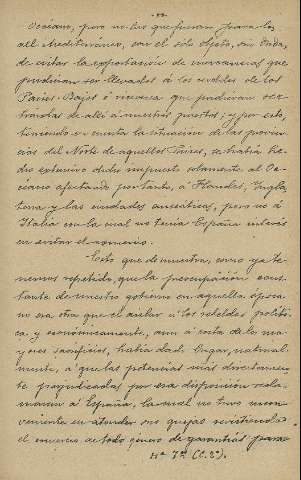 Océano, pero no los que fueran para los
del Mediterráneo, con el solo objeto, sin duda,
de evitar la exportación de mercancías que
pudieran ser llevadas á los rebeldes de los
Países-Bajos ó viceversa que pudieran ser
traidas de allí á nuestros puertos; y por esto,
teniendo en cuenta la situación de las provin-
cias del Norte de aquellos Países, se había he-
cho extensivo dicho impuesto solamente al Oc-
eano afectando por tanto, á Flandes, Ingla-
terra y las ciudades anseáticas, pero nó á
Italia con la cual no tenía España interés
en evitar el comercio.
Esto que demuestra, como ya te-
nemos repetido, que la preocupación cons-
tante de nuestro gobierno en aquella época
no era otra que el aislar á los rebeldes políti-
ca y económicamente, aun á costa de los ma-
yores sacrificios, había dado lugar, natural-
mente, á que las potencias más directamen-
te perjudicadas por esa disposición recla-
maran á España, la cual no tuvo incon-
veniente en atender sus quejas revistiendo
el comercio de todo género de garantías para